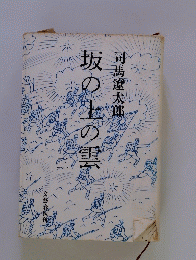 司馬遼太郎
坂の上の雲
文藝春秋